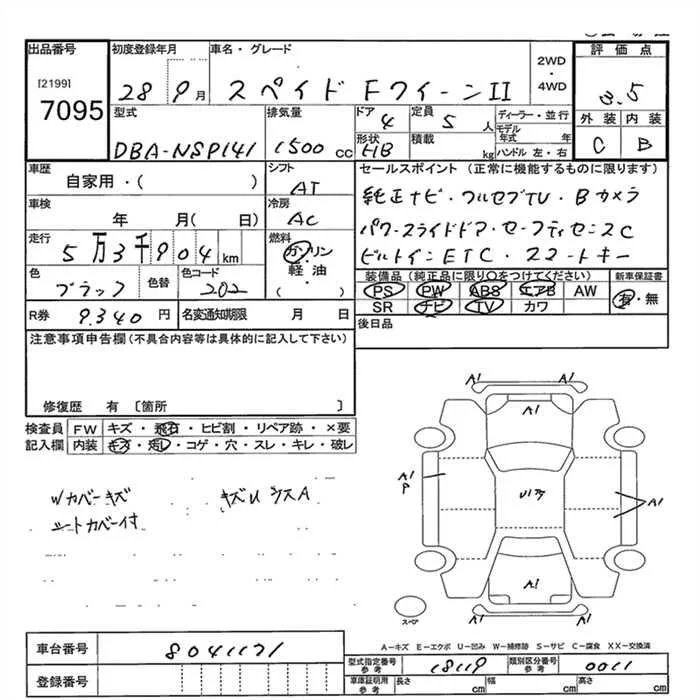 出品番号 初度登録年月 車名・グレード 2WD・4WD 評価点
[2199] 7095 28 9月 スペイド Fクイーン II 3.5
型式 排気量 ドア 4 定員 5人 ディーラー・並行 外装 内装
DBA-NSP141 1500cc 形状 HB 積載 kg モデル年式 年 ハンドル 左・右 C B
車歴 自家用・( ) シフト AT セールスポイント (正常に機能するものに限ります)
車検 年 月( 日) 冷房 AC 純正ナビ・フルセブTV・Bカメラ
走行 5万3千904km 燃料 ガソリン・軽油・( ) パワースライドドア・セーフティセンスC
ビルトインETC・スマートキー
色 ブラック 色替 色コード 202 装備品 (純正品に限り○をつけてください) 新車保証書
PS PW ABS エアB AW 有・無
SR ナビ TV カワ
R券 9.340円 名変通知期限 月 日 後日品
注意事項申告欄 (不具合内容等は具体的に記入して下さい)
修復歴 有 〔箇所 〕
検査員記入欄 FW キズ・飛石・ヒビ割・リペア跡・×要
内装 キズ・汚レ・コゲ・穴・スレ・キレ・破レ
Wカバーキズ
シートカバー付
A1 A1
A1
A1
P
A1
A1
A1 A1
スペア
A-キズ E-エクボ U-凹み W-補修跡 S-サビ C-腐食 XX-交換済
車台番号 8041171
登録番号
型式指定番号 参考 18119 類別区分番号 参考 0011
車庫証明用 参考 長さ cm 幅 cm 高さ cm